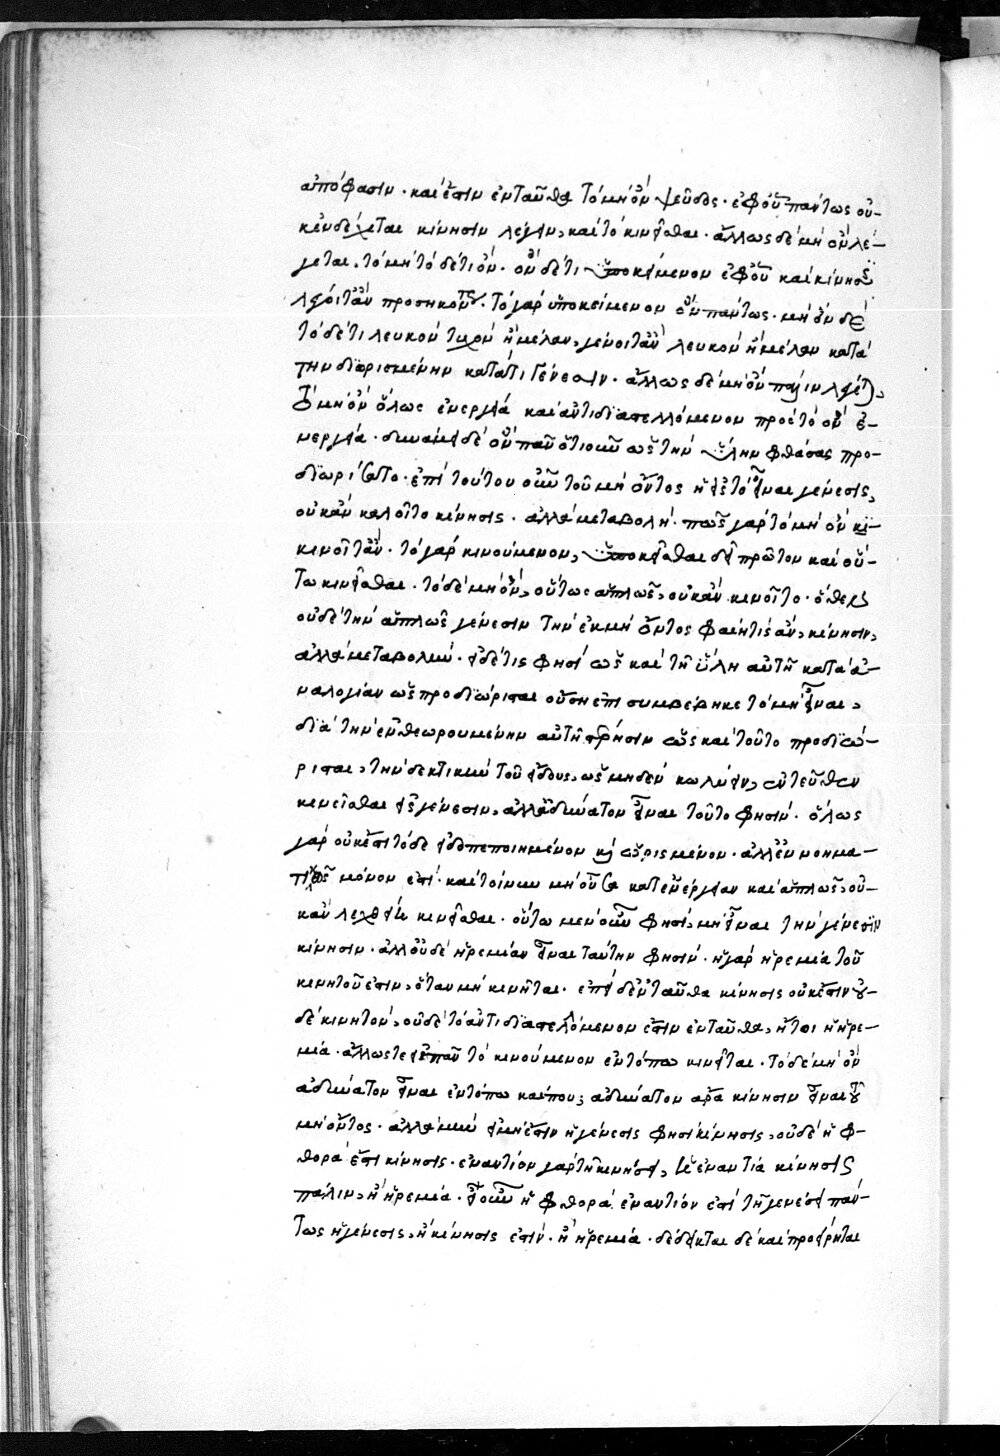 ἀπόφασιν· καὶ ἔστιν ἐνταῦθα τὸ μὴ ὂν ψεῦδος· ἐφ' οὗ πάντως οὐ-
κ ἐνδέχεται κίνησιν λέγειν, καὶ τὸ κινεῖσθαι· ἄλλως δὲ μὴ ὂν λέ-
γεται, τὸ μὴ τόδέ τι ὄν· ὂν δέ τι ὑποκείμενον ἐφ' οὗ καὶ κίνησις
λέγοιτ' ἂν προσηκόντως· τὸ γὰρ ὑποκείμενον ὂν πάντως· μὴ ὂν δὲ
τόδέ τι λευκὸν τυχὸν ἢ μέλαν, γένοιτ' ἂν λευκὸν ἢ μέλαν κατὰ
τὴν διωρισμένην κατά τι γένεσιν· ἄλλως δὲ μὴ ὂν πάλιν λέγεται,
τὸ μὴ ὂν ὅλως ἐνεργεία καὶ ἀντιδιαστελλόμενον πρὸς τὸ ὂν ἐ-
νεργεία· δυνάμει δὲ ὂν πᾶν ὁτιοῦν ὡς τὴν ὕλην φθάσας προ-
διωρίσατο· ἐπὶ τούτου οὖν τοῦ μὴ ὄντος ἡ εἰς τὸ εἶναι γένεσις,
οὐκ ἂν καλοῖτο κίνησις· ἀλλὰ μεταβολή· πῶς γὰρ τὸ μὴ ὂν κι-
κινοῖτ' ἄν· τὸ γὰρ κινούμενον, ὑποκεῖσθαι δεῖ πρῶτον καὶ οὕ-
τω κινεῖσθαι· τὸ δὲ μὴ ὄν, οὕτως ἁπλῶς, οὐκ ἂν κινοῖτο· ὅθεν
οὐδὲ τὴν ἁπλῶς γένεσιν τὴν ἐκ μὴ ὄντος φαίη τις ἄν, κίνησιν,
ἀλλὰ μεταβολήν· εἰ δέ τις φησὶ ὡς καὶ τῆ ὕλη αὐτῆ κατὰ ἀ-
ναλογίαν ὡς προδιώρισται οὔση ἐπισυμβέβηκε τὸ μὴ εἶναι,
διὰ τὴν ἐνθεωρουμένην αὐτῆ στέρησιν ὡς καὶ τοῦτο προδιώ-
ρισται, τὴν δεκτικὴν τοῦ εἴδους, ὡς μηδὲν κωλύειν, ἐντεῦθεν
κινεῖσθαι εἰς γένεσιν, ἀλλ' ἀδύνατον εἶναι τοῦτο φησίν· ὅλως
γὰρ οὐκ ἔστι τόδε εἰδοπεποιημένον καὶ ὡρισμένον· ἀλλ' ἐννοημα-
τικῶς μόνον ἐστί· καὶ τοίνυν μὴ οὖσα κατ' ἐνέργειαν καὶ ἁπλῶς, οὐ-
κ ἂν λεχθείη κινεῖσθαι· οὕτω μὲν οὖν φησὶ, μὴ εἶναι τὴν γένεσιν
κίνησιν· ἀλλ' οὐδὲ ἠρεμίαν εἶναι ταύτην φησίν· ἡ γὰρ ἠρεμία τοῦ
κινητοῦ ἐστιν, ὅταν μὴ κινῆται· ἐπεὶ δ' ἐνταῦθα κίνησις οὐκ ἔστιν οὐ-
δὲ κινητόν, οὐδὲ τὸ ἀντιδιαστελλόμενον ἐστὶν ἐνταῦθα, ἤτοι ἡ ἠρε-
μία· ἄλλως τε εἰ πᾶν τὸ κινούμενον ἐν τόπω κινεῖται· τὸ δὲ μὴ ὂν
ἀδύνατον εἶναι ἐν τόπω καί που, ἀδύνατον ἄρα κίνησιν εἶναι τοῦ
μὴ ὄντος· ἀλλὰ μὴν εἰ μὴ ἔστιν ἡ γένεσις φησὶ κίνησις, οὐδὲ ἡ φ-
θορά ἐστι κίνησις· ἐναντίον γὰρ τῆ κινήσει, ἢ ἐναντία κίνησις
πάλιν, ἢ ἠρεμία· εἰ οὖν ἡ φθορὰ ἐναντίον ἐστὶ τῆ γενέσει πάν-
τως ἡ γένεσις, ἢ κίνησις ἐστιν· ἢ ἠρεμία· δέδεικται δὲ καὶ προείρηται